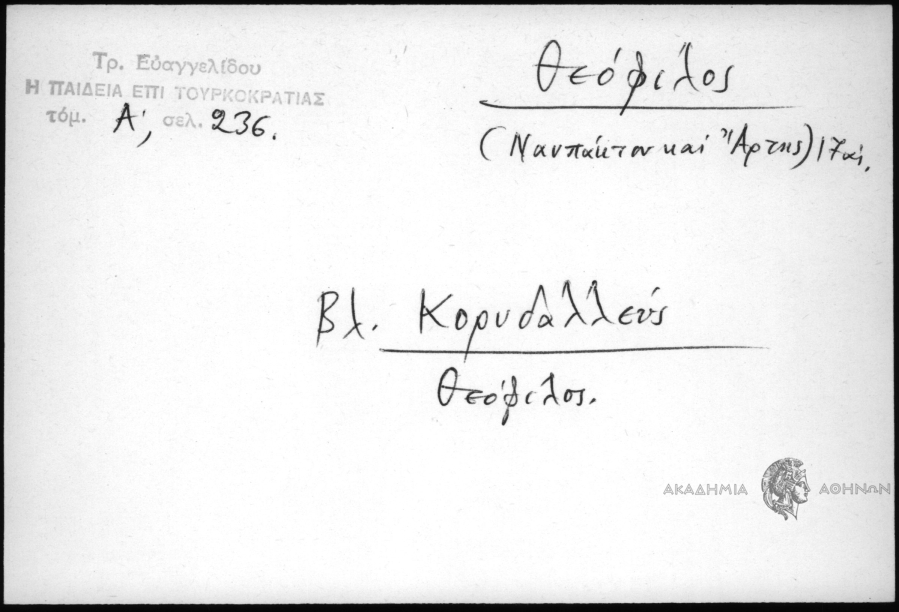 Τρ. Εὐαγγελίδου
Η ΠΑΙΔΕΙΑ ΕΠΙ ΤΟΥΡΚΟΚΡΑΤΙΑΣ
τόμ. Α', σελ. 236.
Θεόφιλος
(Ναυπάκτου καὶ Ἄρτης) 17 αἰ.
Βλ. Κορυδαλλεύς
Θεόφιλος.
ΑΚΑΔΗΜΙΑ ΑΘΗΝΩΝ